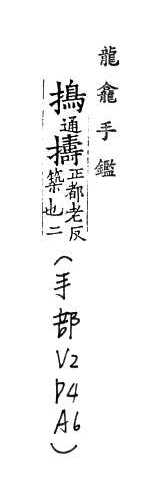 龍龕手鑑
搗通擣正都老反
築也二
(手部
V2
P4
A6)